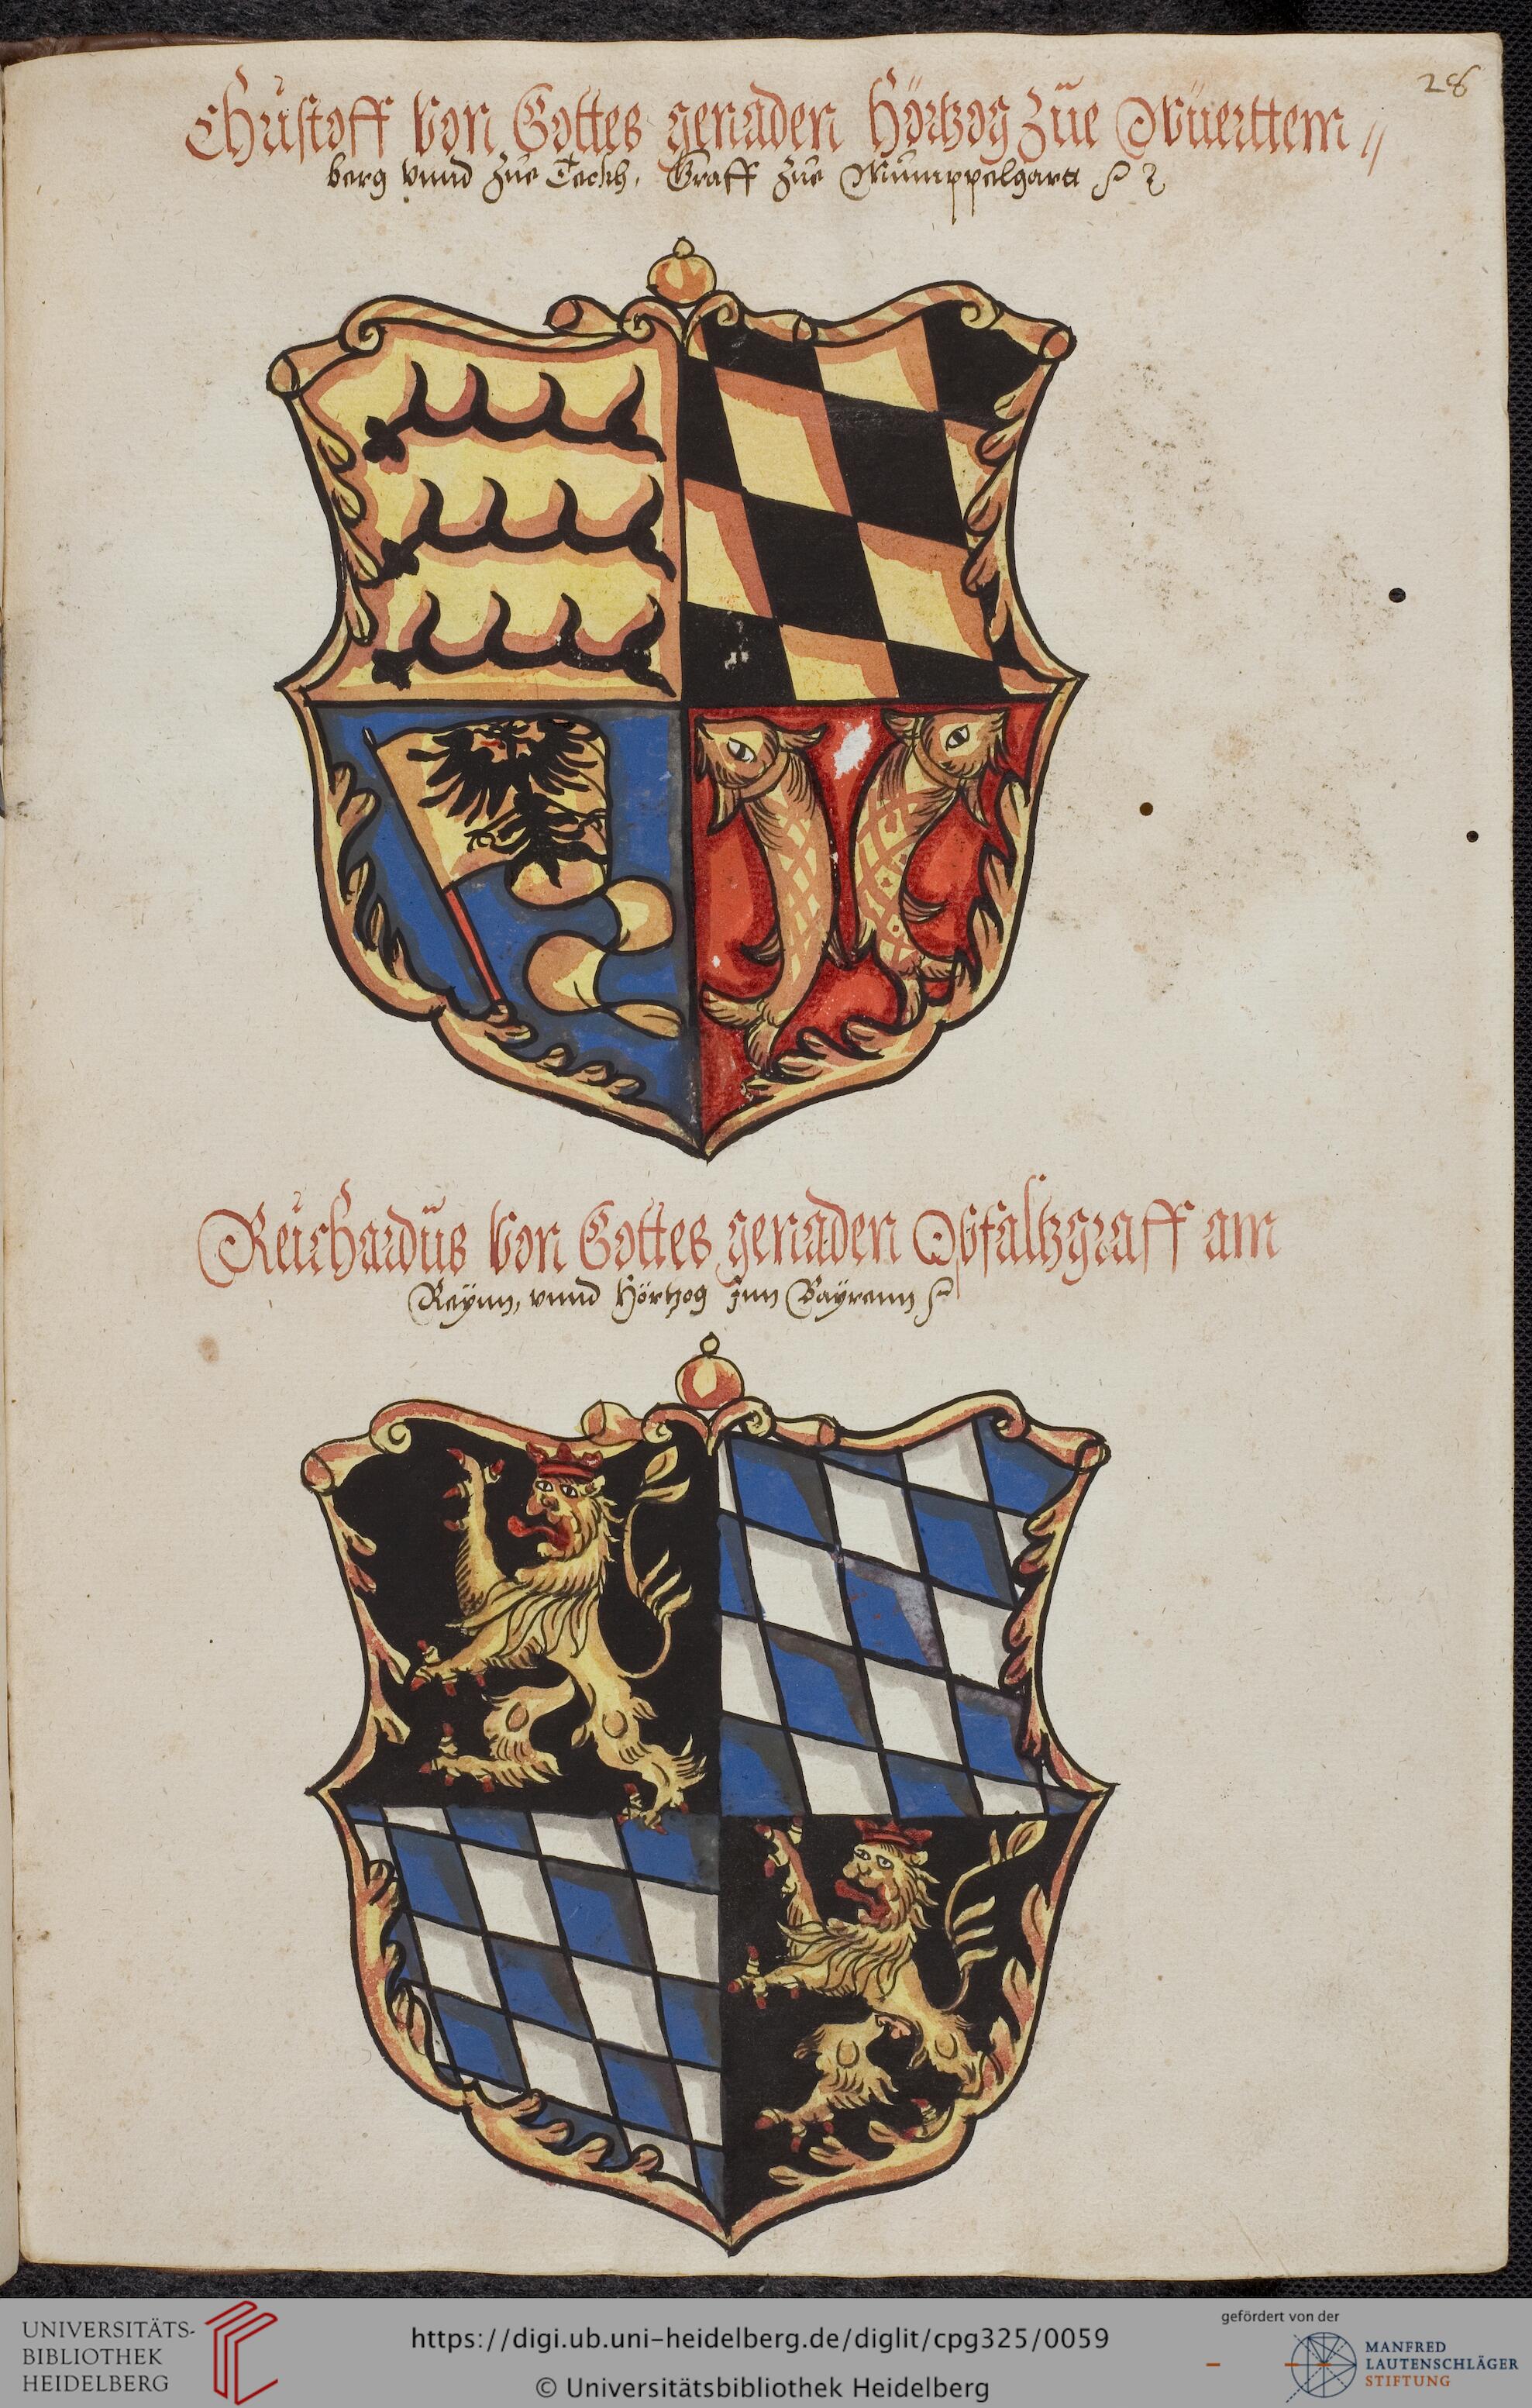 28
Christoff von Gottes genaden Hörtzog zue Wüerttem〃
berg vnnd zue Teckh, Graff zue Mümppelgartt
Reichardus von Gottes genaden Pfaltzgraff am
Reÿnn, vnnd Hörtzog inn Baÿrenn
UNIVERSITÄTS-
BIBLIOTHEK
HEIDELBERG
https://digi.ub.uni-heidelberg.de/diglit/cpg325/0059
© Universitätsbibliothek Heidelberg
gefördert von der
MANFRED
LAUTENSCHLÄGER
STIFTUNG